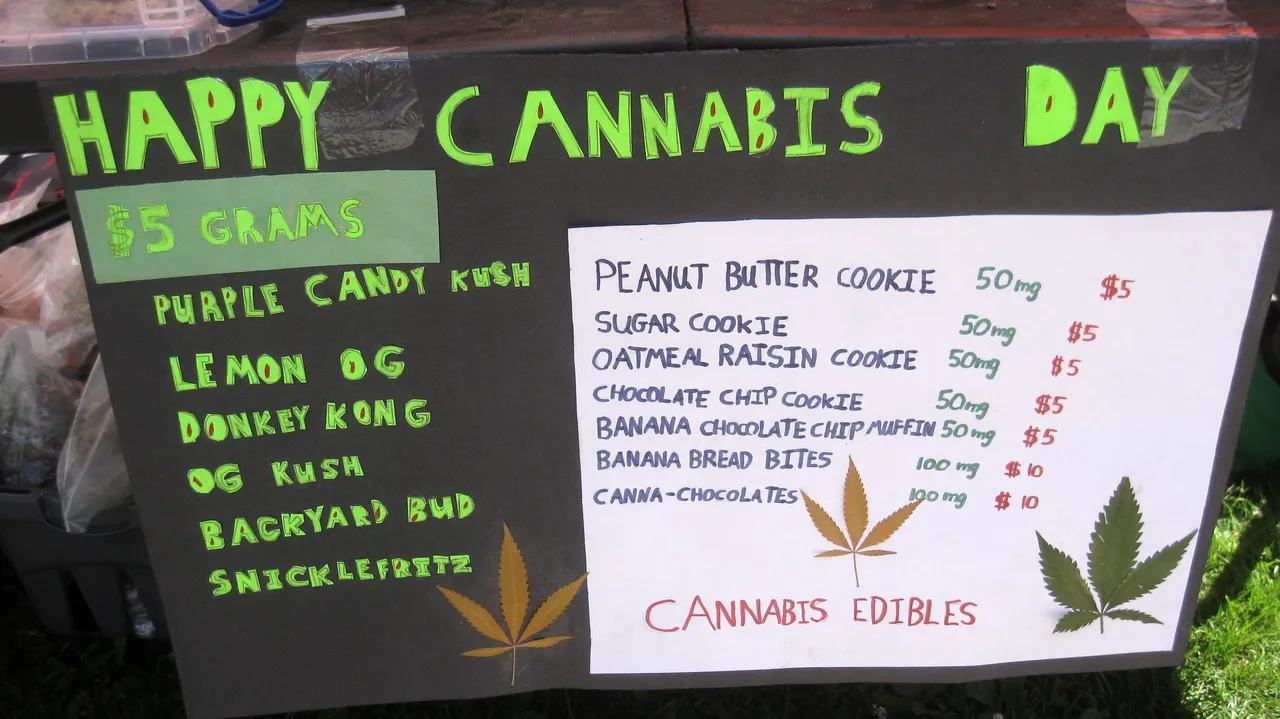 HAPPY CANNABIS DAY
$5 GRAMS
PURPLE CANDY KUSH
LEMON OG
DONKEY KONG
OG KUSH
BACKYARD BUD
SNICKLEFRITZ
PEANUT BUTTER COOKIE 50mg $5
SUGAR COOKIE 50mg $5
OATMEAL RAISIN COOKIE 50mg $5
CHOCOLATE CHIP COOKIE 50mg $5
BANANA CHOCOLATE CHIP MUFFIN 50mg $5
BANANA BREAD BITES 100 mg $10
CANNA-CHOCOLATES 100 mg $10
CANNABIS EDIBLES